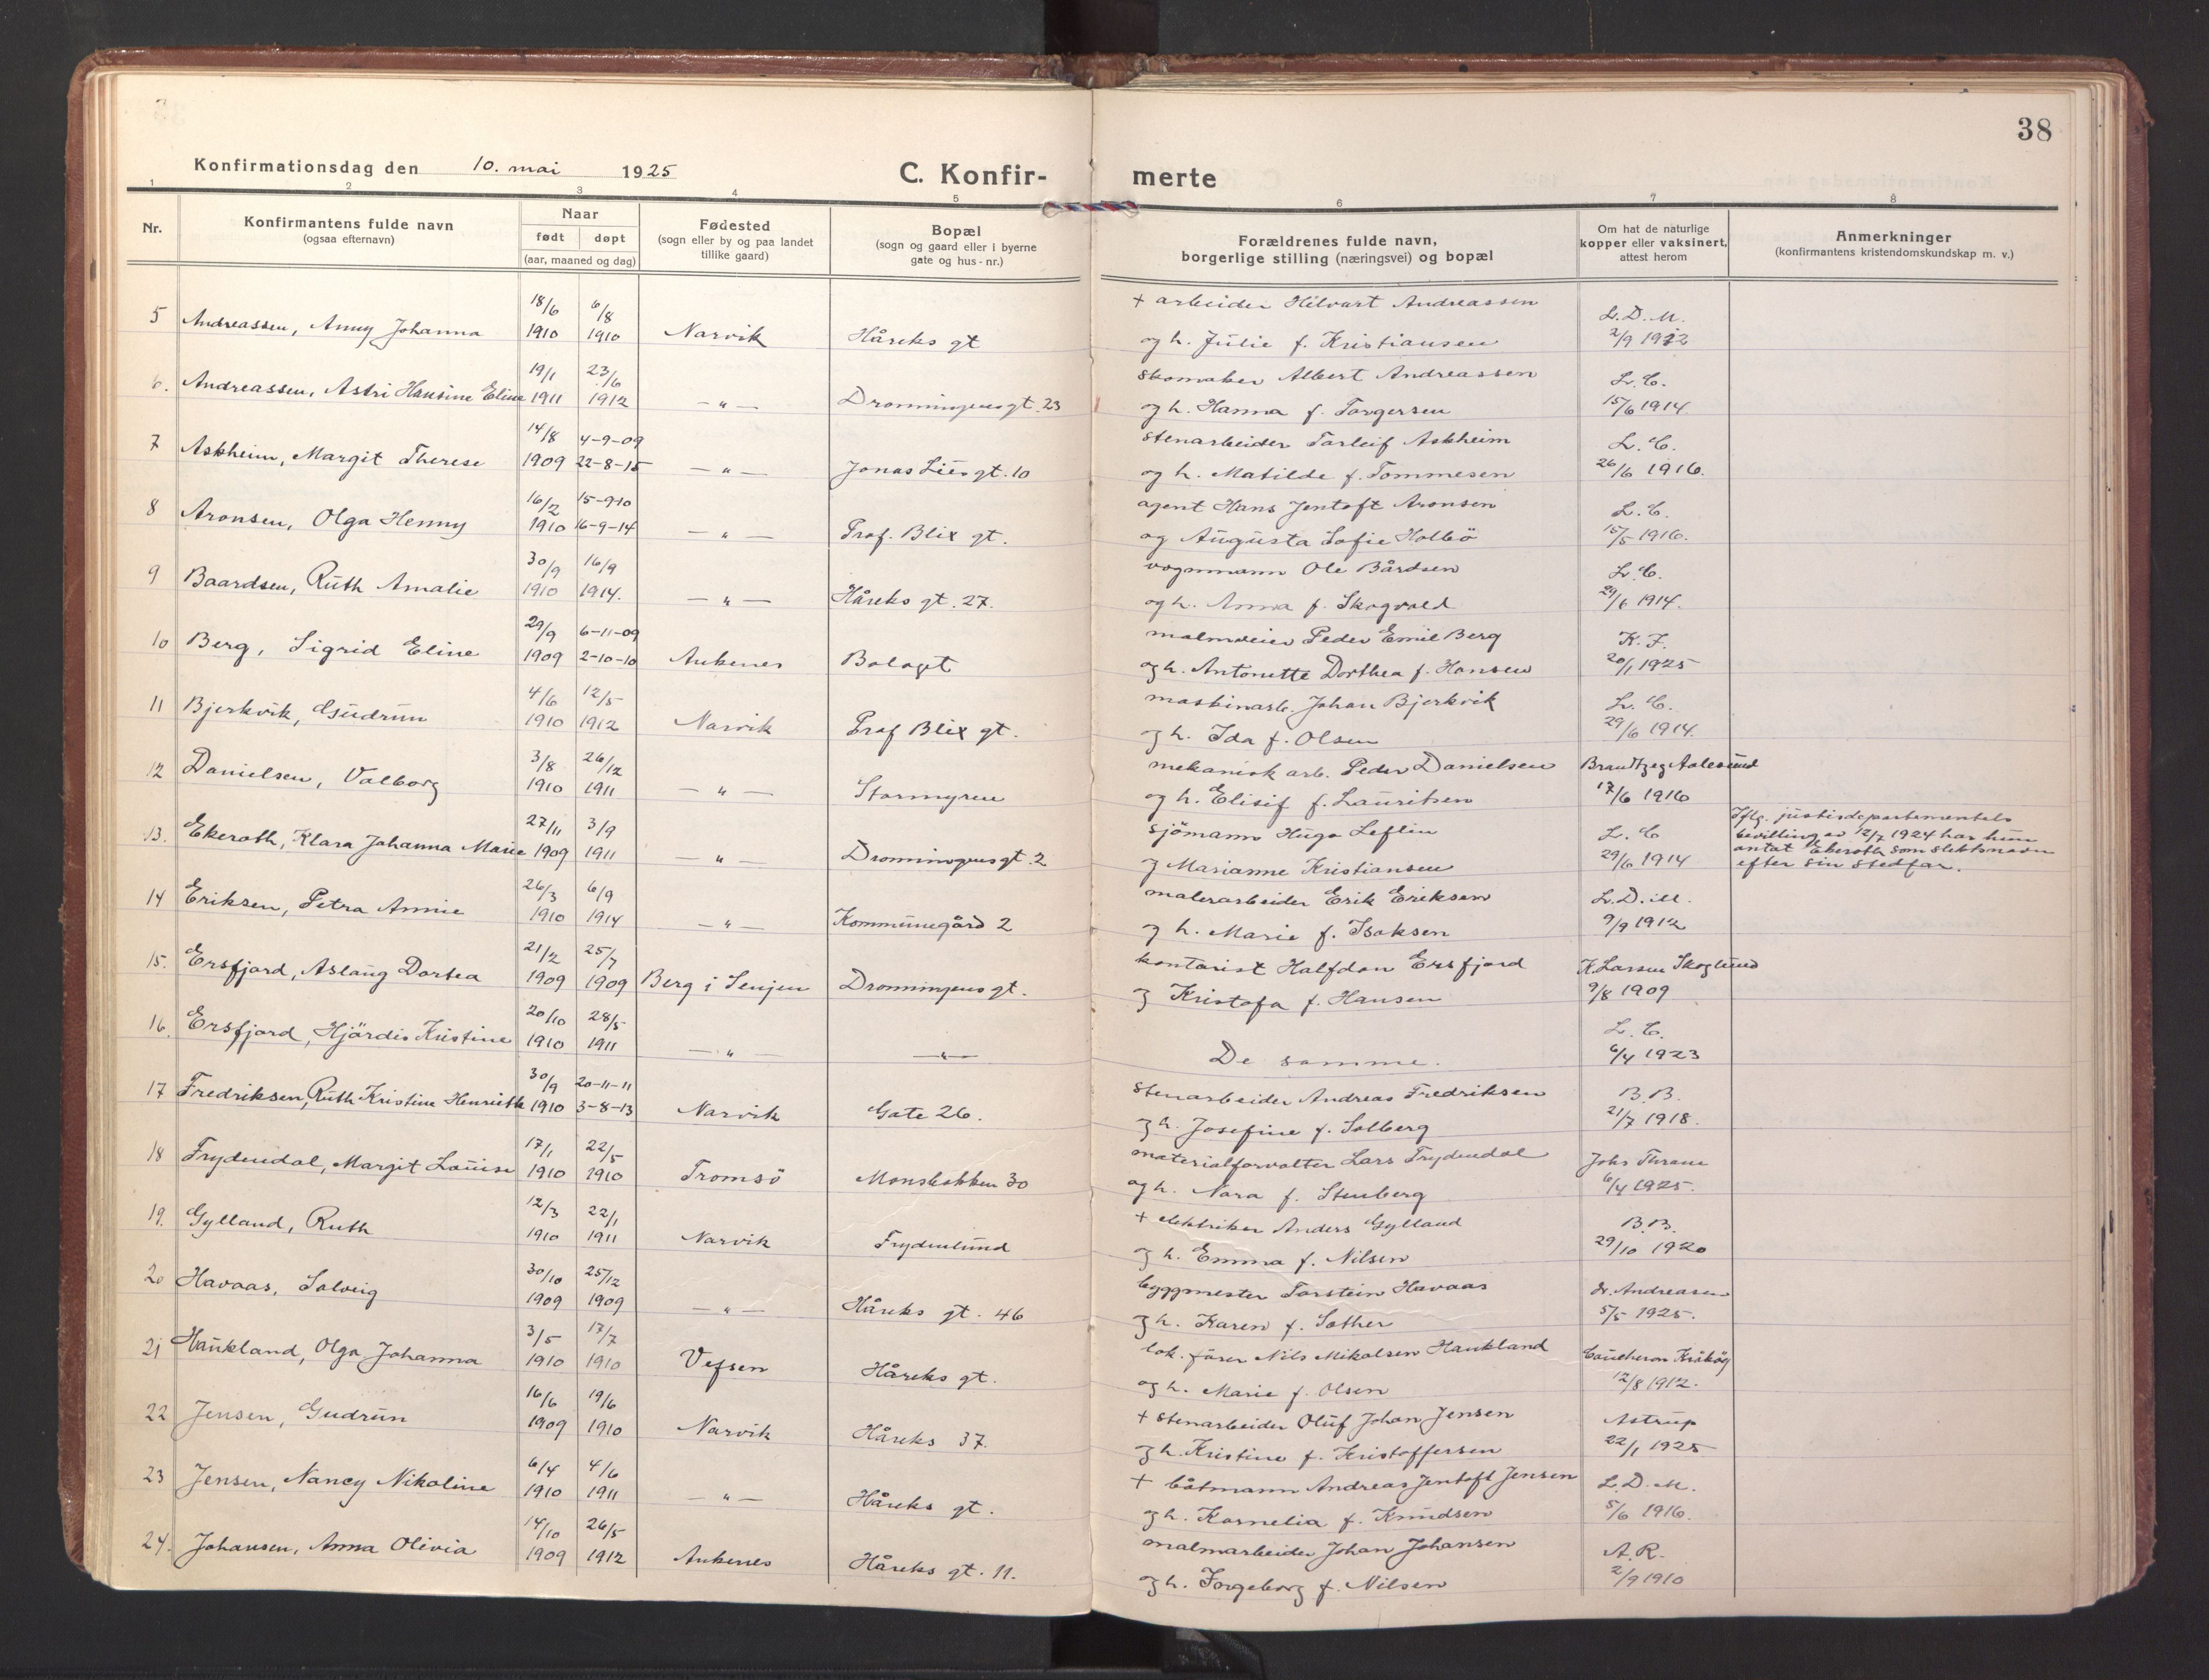 38
Konfirmationsdag den 10. mai 1925 C. Konfir- merte
1 2 3 4 5 6 7 8
Nr. Konfirmantens fulde navn (ogsaa efternavn) Naar født døpt (aar, maaned og dag) Fødested (sogn eller by og paa landet tillike gaard) Bopæl (sogn og gaard eller i byerne gate og hus-nr.) Forældrenes fulde navn, borgerlige stilling (næringsvei) og bopæl Om hat de naturlige kopper eller vaksinert, attest herom Anmerkninger (konfirmantens kristendomskundskap m. v.)
18/6 6/8 + arbeider Hilvart Andreassen L.D.M.
5 Andreassen, Anny Johanna 1910 1910 Narvik Håreks gt og h. Julie f. Kristiansen 2/9 1912
19/1 23/6 skomaker Albert Andreassen L.C.
6. Andreassen, Astri Hansine Eline 1911 1912 -"- Dronningensgt. 23 og h. Hanna f. Torgersen 15/6 1914
14/8 4-9-09 stenarbeider Torleif Askheim L.C.
7 Askheim, Margit Therese 1909 22-8-15 -"- Jonas Liesgt. 10 og h. Matilde f. Tommesen 26/6 1916.
16/2 15-9-10 agent Hans Jentoft Aronsen L.C.
8 Aronsen, Olga Henny 1910 16-9-14 -"- Prof. Blix gt. og Augusta Sofie Holbö 15/5 1916.
30/9 16/9 vognmann Ole Bårdsen L.C.
9 Baardsen, Ruth Amalie 1910 1914. -"- Håreks gt. 27. og h. Anna f. Skogvold 29/6 1914.
29/9 6-11-09 malmveier Peder Emil Berg K.F.
10 Berg, Sigrid Eline 1909 2-10-10 Ankenes Bolaget og h. Antonette Dorthea f. Hansen 20/1 1925
4/6 12/5 maskinarb. Johan Bjerkvik L.C.
11 Bjerkvik, Gudrun 1910 1912 Narvik Prof Blix gt. og h. Ida f. Olsen 29/6 1914.
3/8 26/12 mekanisk arb. Peder Danielsen Brandtzeg Aalesund
12 Danielsen, Valborg 1910 1911 -"- Stormyren og h. Elisif f. Lauritsen 17/6 1916
27/11 3/9 sjömann Hugo Leflin L.C
13. Ekeroth, Klara Johanna Marie 1909 1911 -"- Dronningensgt. 2 og Marianne Kristiansen 29/6 1914
Iflg. justisdepartementets
bevilling av 12/7 1924 har hun
antat Ekeroth som slektsnavn
efter sin stedfar.
26/3 6/9 malerarbeider Erik Eriksen L.D.M.
14 Eriksen, Petra Annie 1910 1914 -"- Kommunegård 2 og h. Marie f. Isaksen 9/9 1912
21/2 25/7 kontorist Halfdan Ersfjord K. Larsen Skoglund
15. Ersfjord, Aslaug Dortea 1909 1909 Berg i Senjen Dronningensgt. og Kristofa f. Hansen 9/8 1909
20/10 28/5 L.C.
16. Ersfjord, Hjördis Kristine 1910 1911 -"- -"- De samme. 6/4 1923
30/9 20-11-11 stenarbeider Andreas Fredriksen B.B.
17 Fredriksen, Ruth Kristine Henriette 1910 3-8-13 Narvik Gate 26. og h. Josefine f. Solberg 21/7 1918.
17/1 22/5 materialforvalter Lars Frydendal Johs Thrane
18 Frydendal, Margit Louise 1910 1910 Tromsö Monsbakken 30 og h. Nora f. Stenberg 6/4 1925.
12/3 22/1 + elektriker Anders Gylland B.B.
19. Gylland, Ruth 1910 1911 Narvik Frydenlund og h. Emma f. Nilsen 29/10 1920
30/10 25/12 byggmester Torstein Havaas Dr. Andreasen
20 Havaas, Solveig 1909 1909 -"- Håreks gt. 46 og h. Karen f. Sæther 5/5 1925.
3/5 17/7 lok. fører Nils Mikalsen Haukland
21 Haukland, Olga Johanna 1910 1910 Vefsen Håreks gt. og h. Marie f. Olsen 12/8 1912.
16/6 19/6 + stenarbeider Oluf Johan Jensen Astrup
22 Jensen, Gudrun 1909 1910 Narvik Håreks 37. og h. Kristine f. Kristoffersen 22/1 1925
6/4 4/6 + båtmann Andreas Jentoft Jensen L.D.M.
23 Jensen, Nancy Nikoline 1910 1911 -"- Håreks gt. og h. Kornelia f. Knudsen 5/6 1916.
14/10 26/5 malmarbeider Johan Johansen A.R.
24. Johansen, Anna Olivia 1909 1912 Ankenes Håreks gt. 11. og h. Ingeborg f. Nilsen 2/9 1910